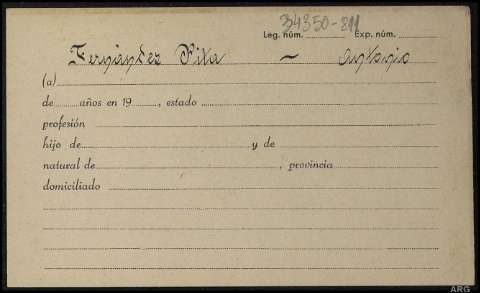 34350-811
Leg. núm. Exp. núm.
Fernández Pita — Antonio
(a)
de años en 19 , estado
profesión
hijo de y de
natural de , provincia
domiciliado
ARG